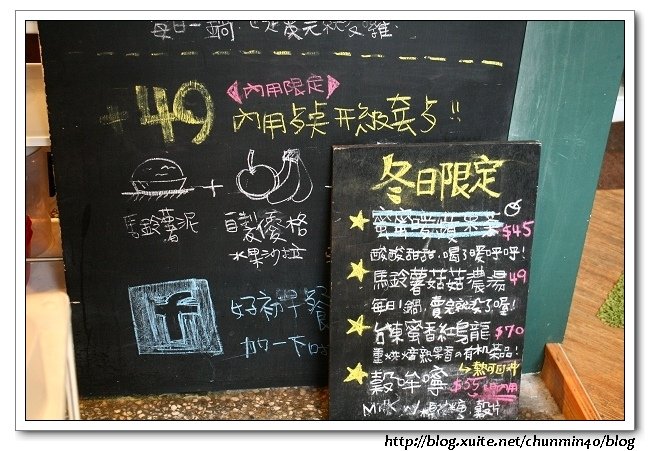 每日一鍋
+49
《內用限定》
內用 升級套
馬鈴薯泥
+
自製優格
水果沙拉
f
好初
加一下
冬日限定
$45
酸酸甜甜.喝了暖呼呼!
馬鈴薯菇菇濃湯 49
每日1鍋 賣完就沒了喔!
台東蜜香紅烏龍 $70
重烘焙熟果香の有机茶品!
穀哞嚀 $55
穀片
http://blog.xuite.net/chunmin40/blog